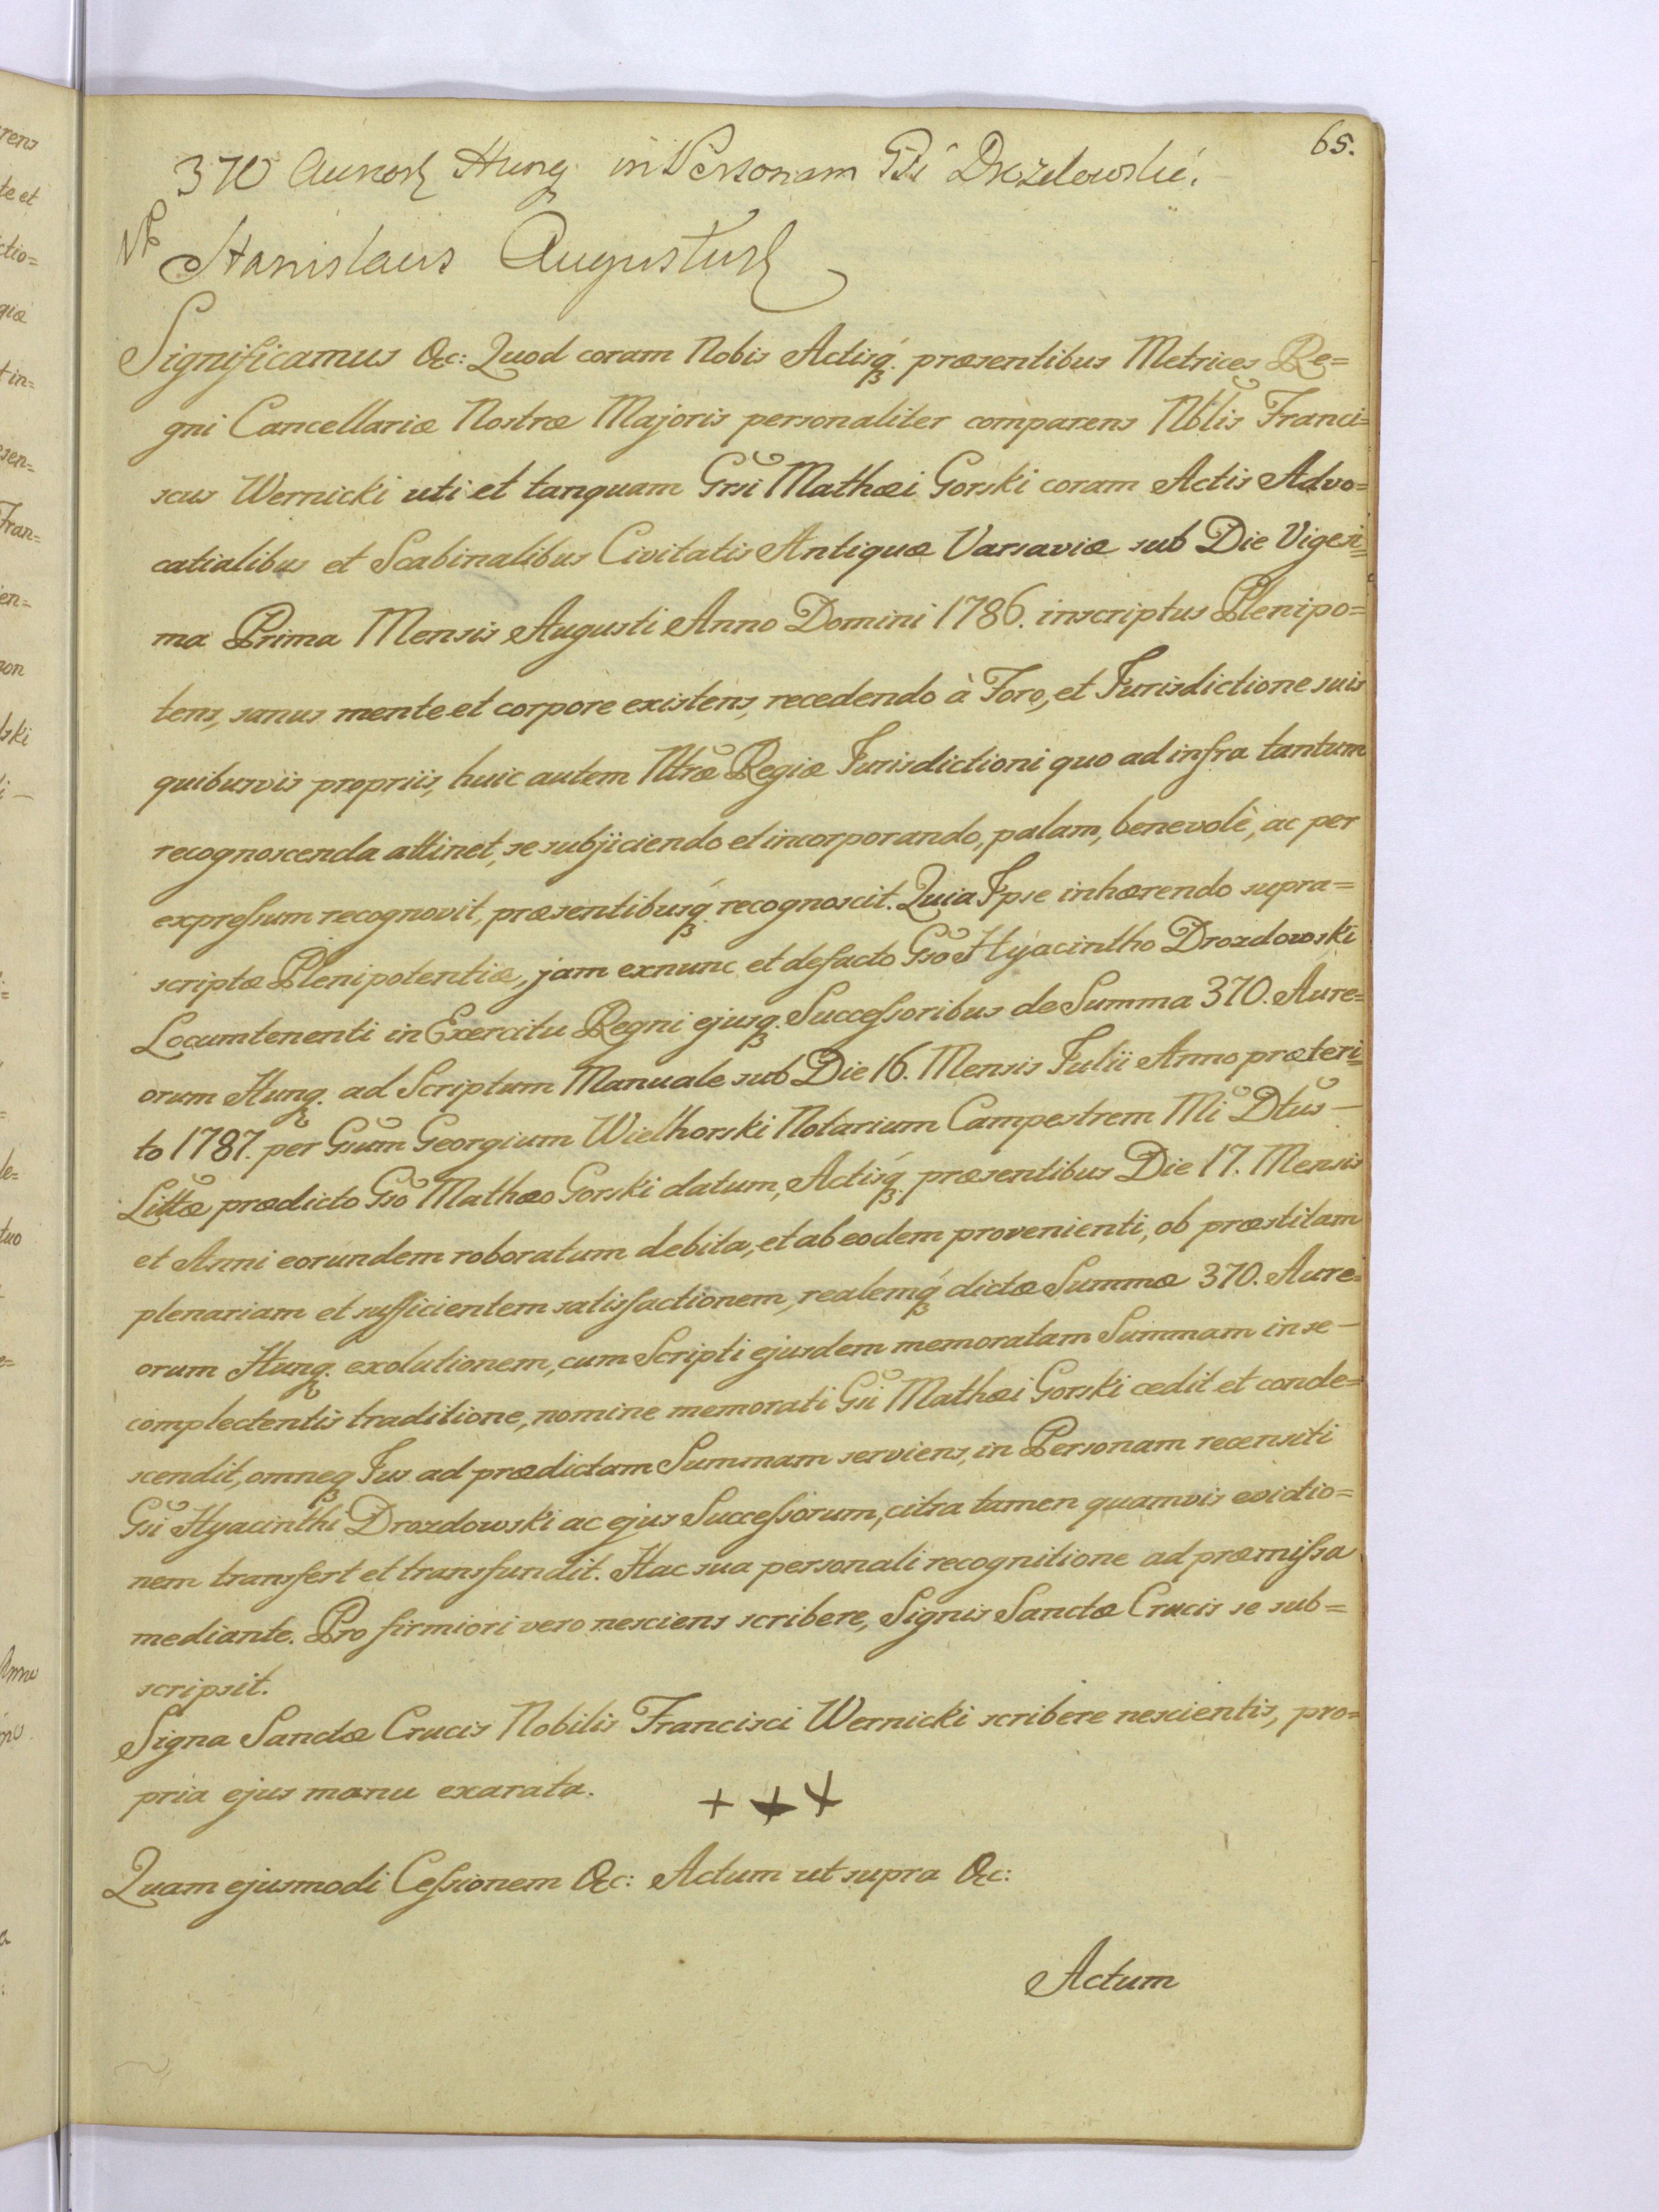 65.
370 Aureor Hung. in Personam Gsi Drozdowski.
Stanislaus Augustus
Significamus &c: Quod coram Nobis Actisq. præsentibus Metrices Re=
gni Cancellariæ Nostræ Majoris personaliter comparens Nblis Franci=
scus Wernicki uti et tanquam Grsi Mathæi Gorski coram Actis Advo=
catialibus et Scabinalibus Civitatis Antiquæ Varsaviæ sub Die Vigesi=
ma Prima Mensis Augusti Anno Domini 1786. inscriptus Plenipo=
tens, sanus mente et corpore existens, recedendo à Foro, et Jurisdictione suis
quibusvis propriis, huic autem Ntræ Regiæ Jurisdictioni quo ad infra tantum
recognoscenda attinet, se subjiciendo et incorporando, palam, benevolè, ac per
expreſsum recognovit, præsentibusq. recognoscit. Quia Ipse inhærendo supra=
scriptæ Plenipotentiæ, jam exnunc et defacto Gso Hyacintho Drozdowski
Locumtenenti in Exercitu Regni ejusq. Succeſsoribus de Summa 370. Aure=
orum Hung. ad Scriptum Manuale sub Die 16. Mensis Julii Anno præteri=
to 1787. per Gsum Georgium Wielhorski Notarium Campestrem Mi Dtus —
Littæ prædicto Gso Mathæo Gorski datum, Actisq. præsentibus Die 17. Mensis
et Anni eorundem roboratum debita, et ab eodem provenienti, ob præstitam
plenariam et sufficientem satisfactionem, realemq. dictæ Summæ 370. Aure=
orum Hung. exolutionem, cum Scripti ejusdem memoratam Summam in se —
complectentis traditione, nomine memorati Gsi Mathæi Gorski cedit et conde=
scendit, omneq. Jus ad prædictam Summam serviens, in Personam recensiti
Gsi Hyacinthi Drozdowski ac ejus Succeſsorum, citra tamen quamvis evictio=
nem transfert et transfundit. Hac sua personali recognitione ad præmiſsa
mediante. Pro firmiori vero nesciens scribere, Signis Sanctæ Crucis se sub=
scripsit.
Signa Sanctæ Crucis Nobilis Francisci Wernicki scribere nescientis, pro=
pria ejus manu exarata. + + +
Quam ejusmodi Ceſsionem &c: Actum ut supra &c:
Actum